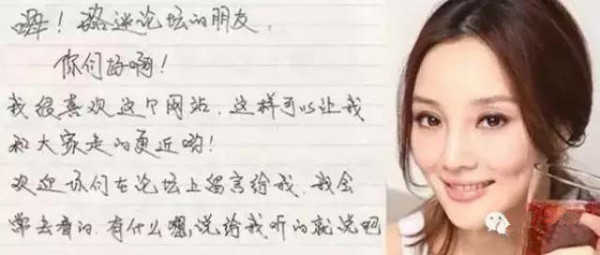 嗨！璐迷论坛的朋友，
你们好啊！
我很喜欢这个网站，这样可以让我
和大家走的更近哟！
欢迎你们在论坛上留言给我，我会
常去看的，有什么想说给我听的就说吧